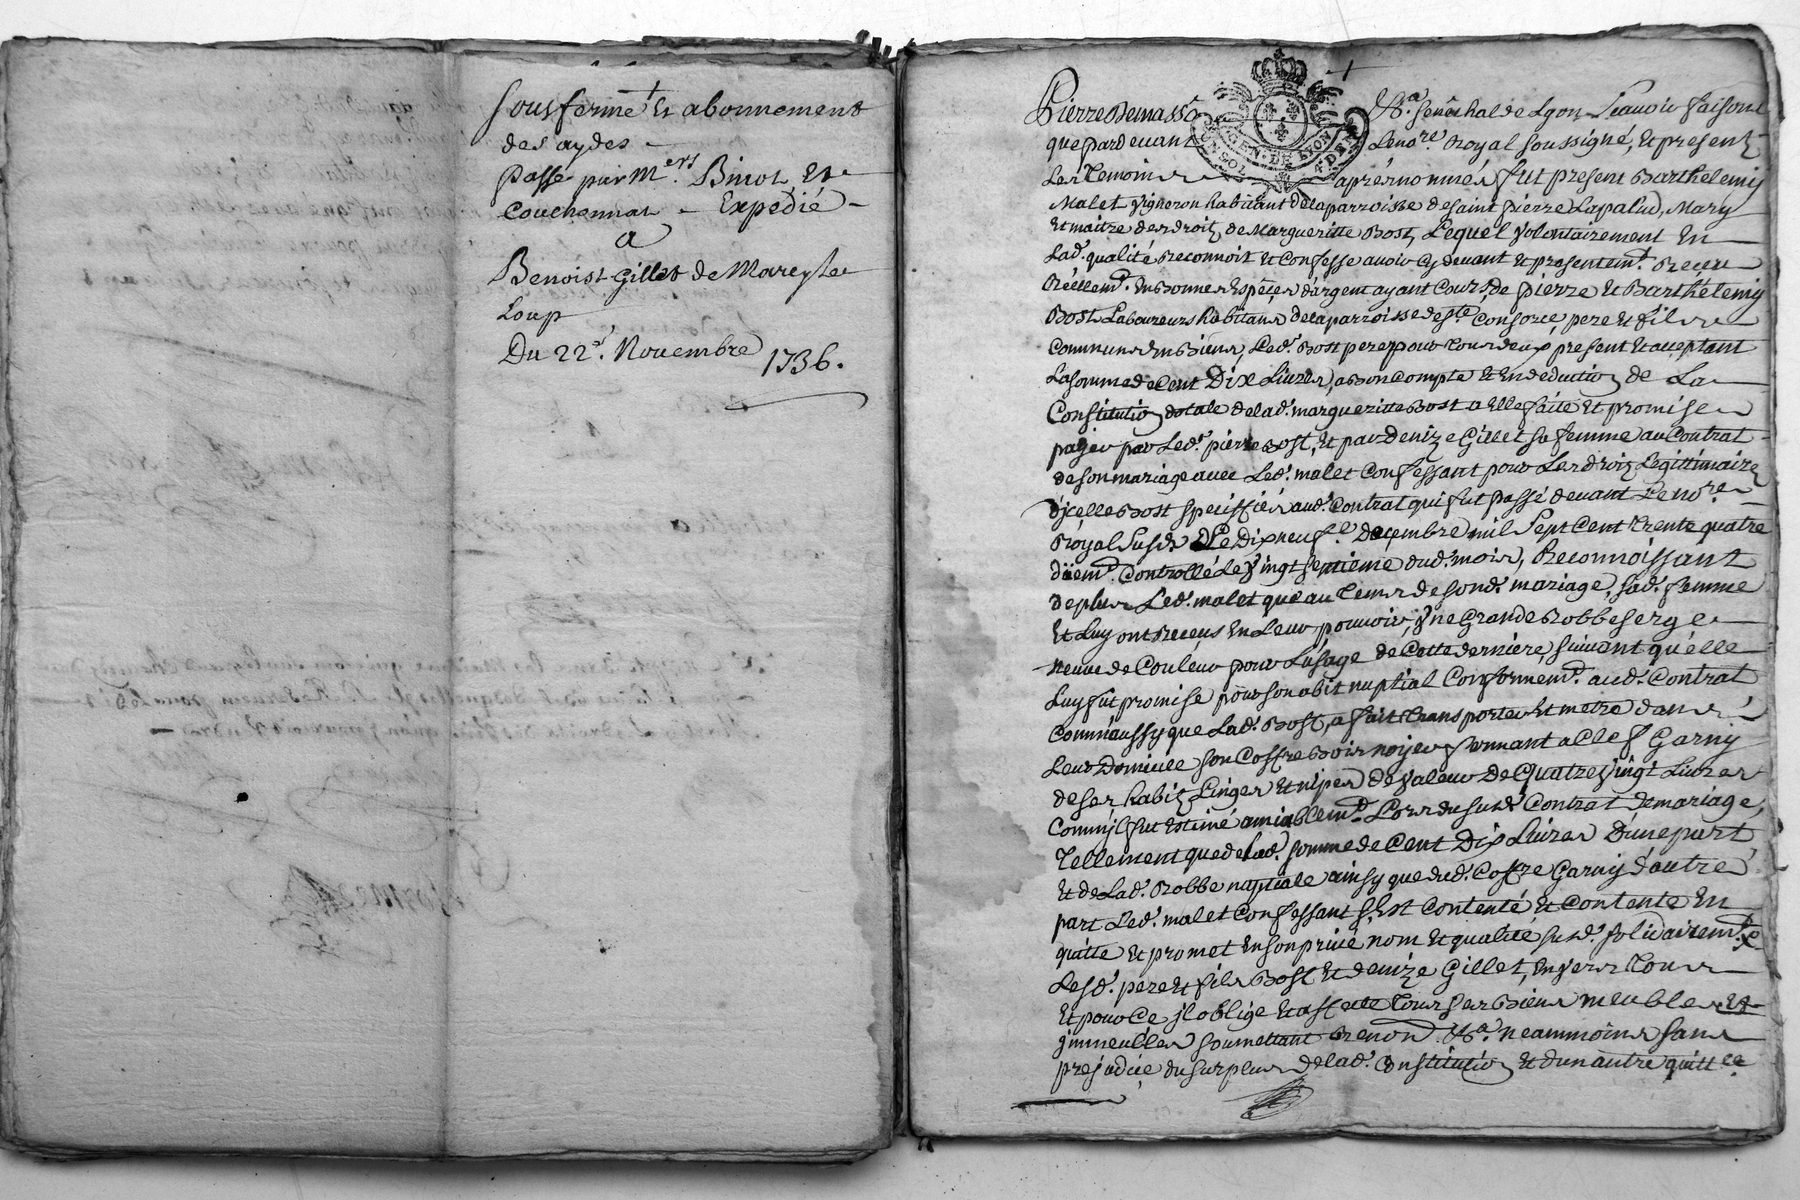 Sousferme et abonnement
des aydes -
Passé par M.ers Binot et
Couchonnat - Expedié -
a
Benoist Gillet de Marcy le
Loup
Du 22.e Novembre 1736.
Pierre Demasso &.a senéchal de Lyon Scavoir faisons
GEN. DE LYON
que pardevant Le no.re Royal soussigné, et presents
Les temoins aprés nommés fut present Barthelemy
Malet vigneron habitant de la parroisse de saint pierre Lapalud, Mary
et maitre des droits de Margueritte Bost, Lequel volontairement en
Lad. qualité reconnoit et confesse avoir cy devant et presentem.t Receu
Réellem.t en bonnes espéces d'argent ayant cours, de pierre et Barthélemy
Bost Laboureurs habitans de la parroisse de s.te Consorce, pere et fils
communs en biens, Led. Bost pere pour tous deux present et acceptant
La somme de Cent Dix Livres, a bon compte et en deduction de La
Constitution dotale de lad. margueritte Bost a elle faite et promise
payer par Led. pierre Bost, et par denize Gillet sa femme au Contrat
de son mariage avec Led. malet confessant pour Les droits Legittimaires
d'jcelle Bost speciffiés aud. contrat qui fut passé devant Le no.re
Royal susd. Le Dixneuf.e decembre mil sept Cent trente quatre
düem.t Controllé Le vingt septiéme dud. mois, Reconnoissant
de plus Led. malet qu'au tems de sond. mariage, sad. femme
et Luy ont receus en Leur pouvoir, vne Grande Robbe serge
neuve de Couleur pour L'usage de cotte derniére, suivant qu'elle
Luy fut promise pour son abit nuptial Conformem.t aud. Contrat
Comm'aussy que Lad. Bost, a fait transporter et metre dans
Leur Domicile son Coffre bois noyer fermant a Clef Garny
de ses habits Linges et nipes de valeur de Quatre vingt Livres
Comm'jl fut estimé amiablem.t Lors du susd. Contrat de mariage,
Tellement que de lad. somme de Cent Dix Livres D'une part
et de Lad. Robbe nuptiale ainsy que dud. Coffre Garny d'autre
part Led. malet confessant s'est contenté et contente en
quitte et promet en son privé nom et qualité susd. solidairem.t
Lesd. pere et fils Bost et denize Gillet, envers tous
et pour ce jl oblige tous ses biens meubles et
jmmeubles soumettant renon.t &.a neammoins sans
prejudice du surplus de lad. Constitution et d'un autre quittce